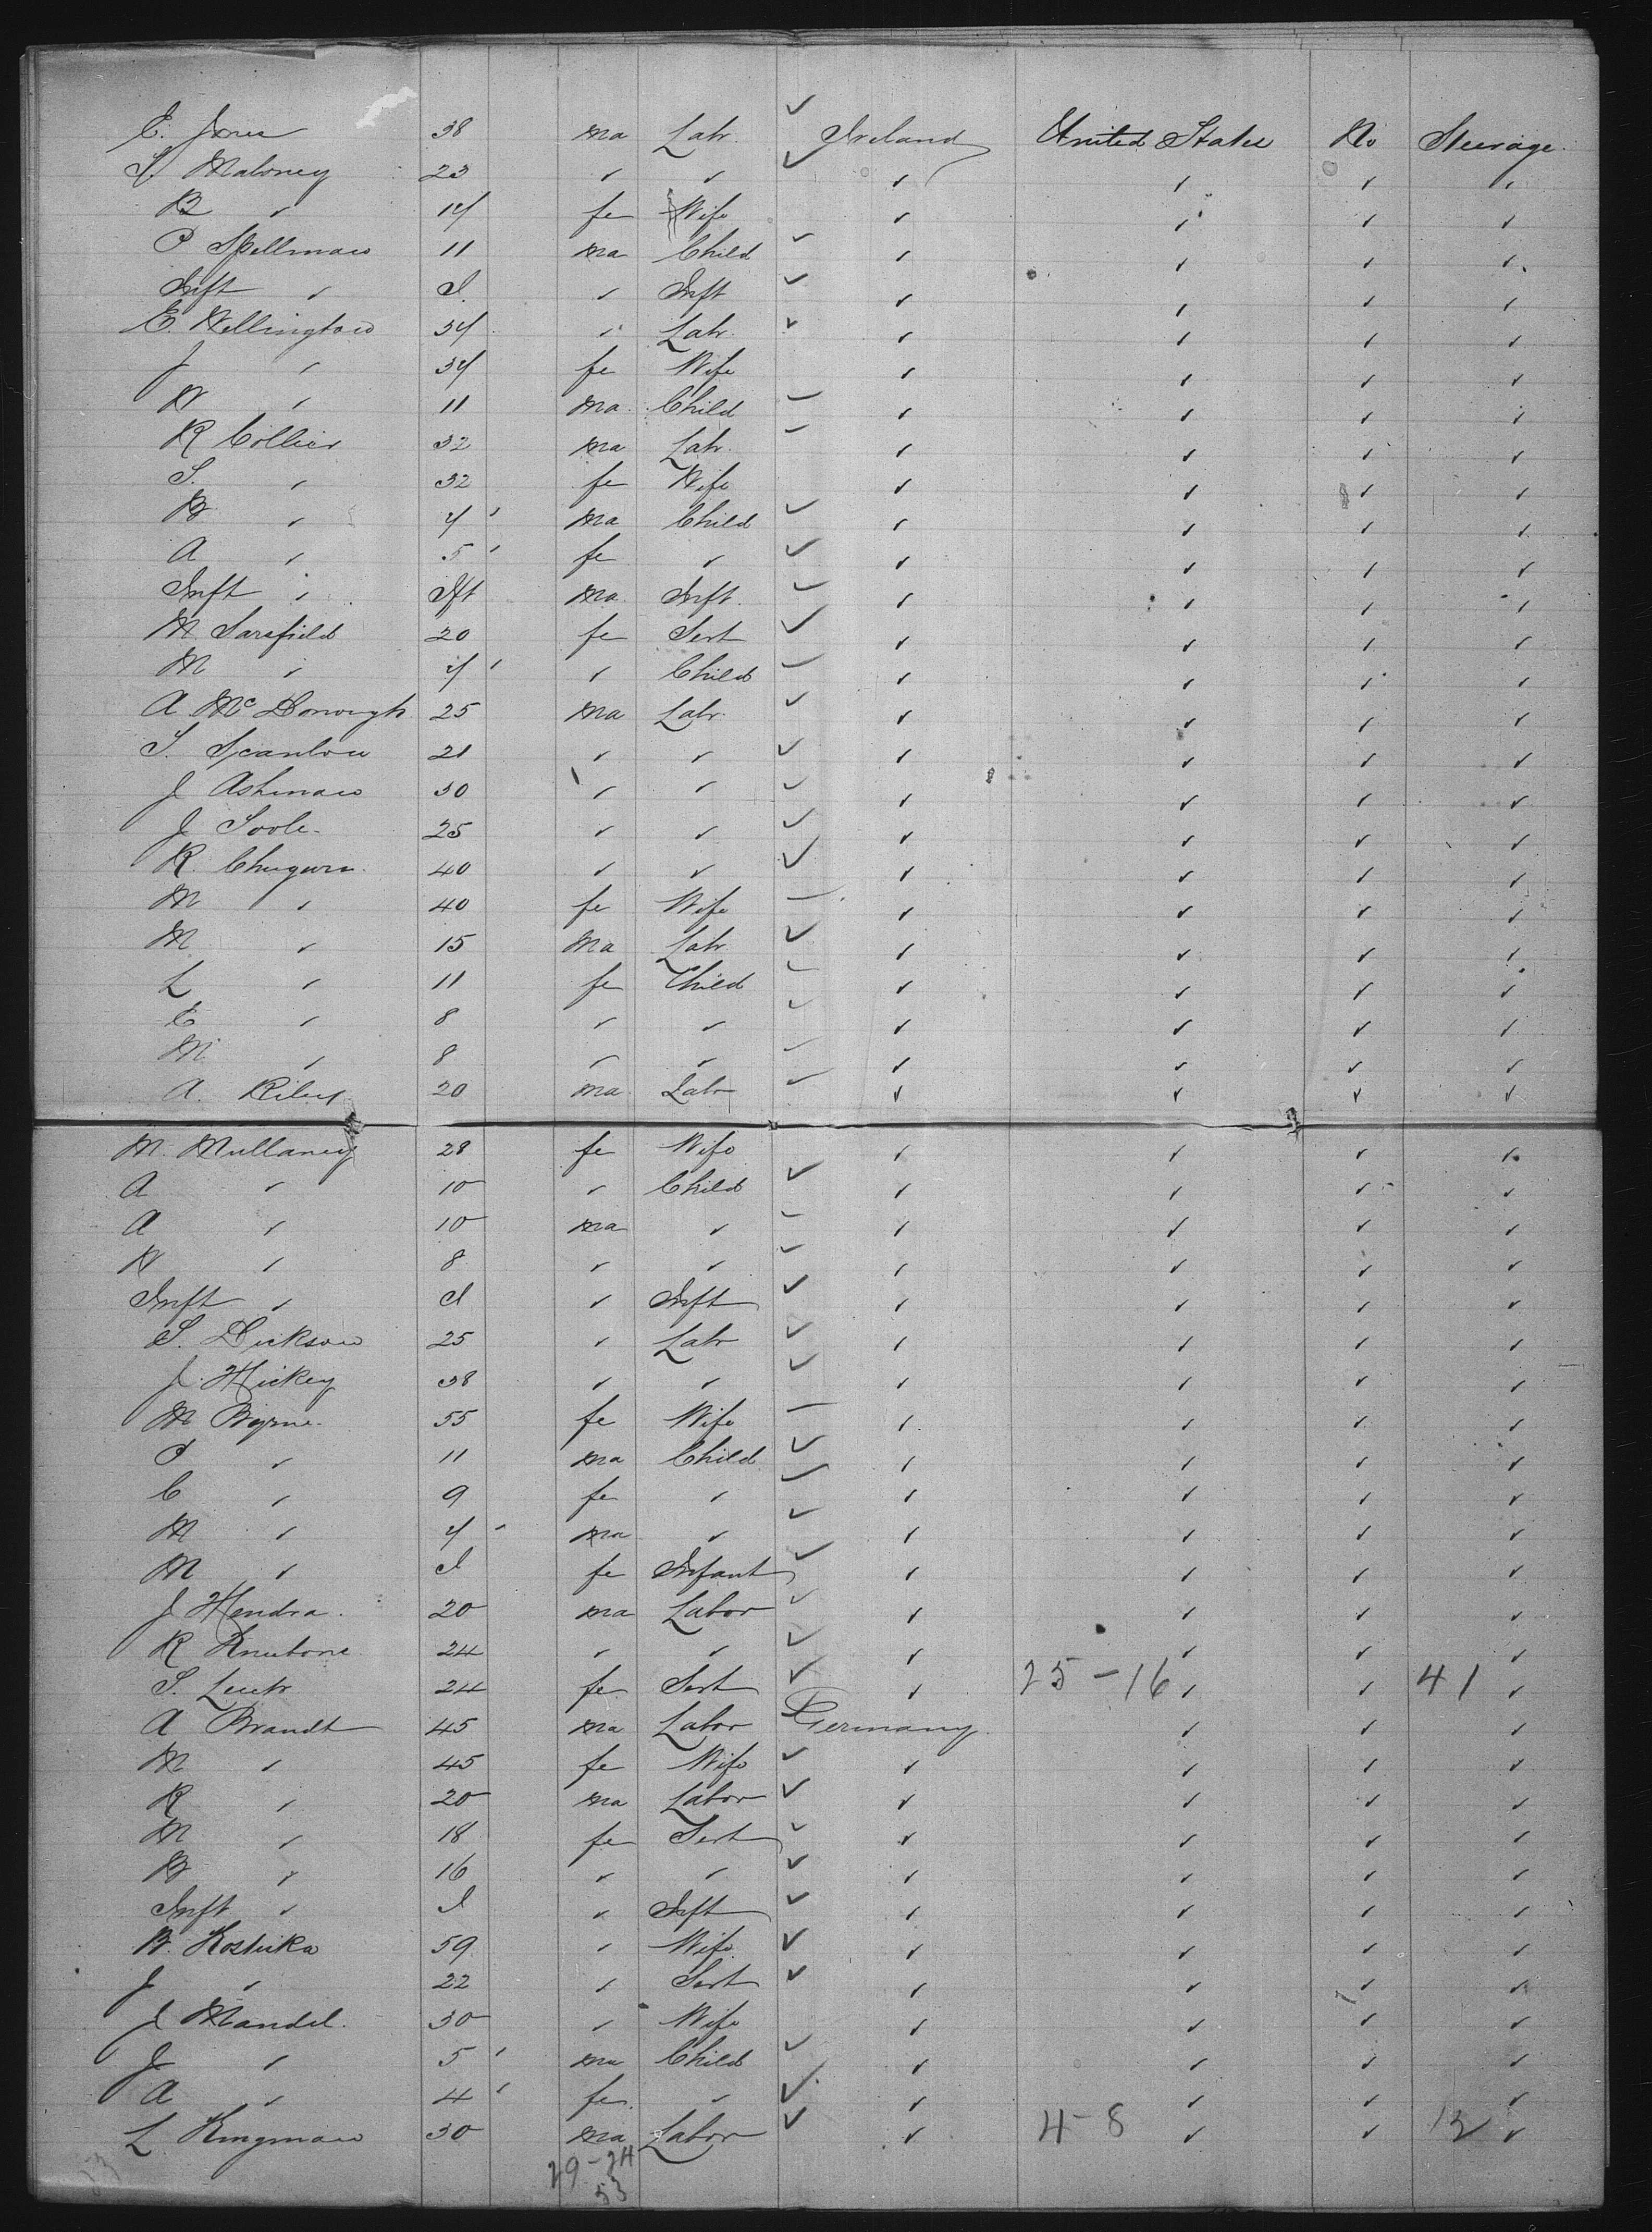 E. Jones 38 ma Labr Ireland United States No Steerage
S. Maloney 23 " " " " " "
B " 14 fe Wife " " " "
P Spellman 11 ma Child " " " "
Inft " I. " Inft " " " "
E. Wellington 34 " Labr " " " "
J " 34 fe Wife " " " "
W " 11 ma Child " " " "
R Collier 32 ma Labr " " " "
S. " 32 fe Wife " " " "
B " 4 ma Child " " " "
A " 5 fe " " " " "
Inft " Ift ma Inft " " " "
M Sarsfield 20 fe Sert " " " "
M " 4 " Child " " " "
A McDonough 25 ma Labr " " " "
S. Scanlon 21 " " " " " "
J Ashman 30 " " " " " "
J Soole 25 " " " " " "
R. 40 " " " " " "
M " 40 fe Wife " " " "
M " 15 Ma Labr " " " "
L " 11 fe Child " " " "
E " 8 " " " " " "
M " 8 " " " " " "
A. Riley 20 ma Labr " " " "
M. Mullaney 28 fe Wife " " " "
A " 10 " Child " " " "
A " 10 ma " " " " "
W " 8 " " " " " "
Inft " I " Inft " " " "
S. Dickson 25 " Labr " " " "
J. Hickey 38 " " " " " "
M Byrne 55 fe Wife " " " "
P " 11 ma Child " " " "
C " 9 fe " " " " "
M " 4 ma " " " " "
M " I fe Infant " " " "
J Hendra 20 ma Labor " " " "
R 24 " " " " " "
S. 24 fe Sert " 25-16 " " 41 "
A Brandt 45 ma Labor Germany " " "
M " 45 fe Wife " " " "
R " 20 ma Labor " " " "
M " 18 fe Sert " " " "
B " 16 " " " " " "
Inft " I " Inft " " " "
B. Kostuka 59 " Wife " " " "
J " 22 " Sert " " " "
J Mandel 30 " Wife " " " "
J " 5 ma Child " " " "
A " 4 fe " " " " "
L Kingman 30 ma Labor " 4-8 " " 12 "
29-24
53
53